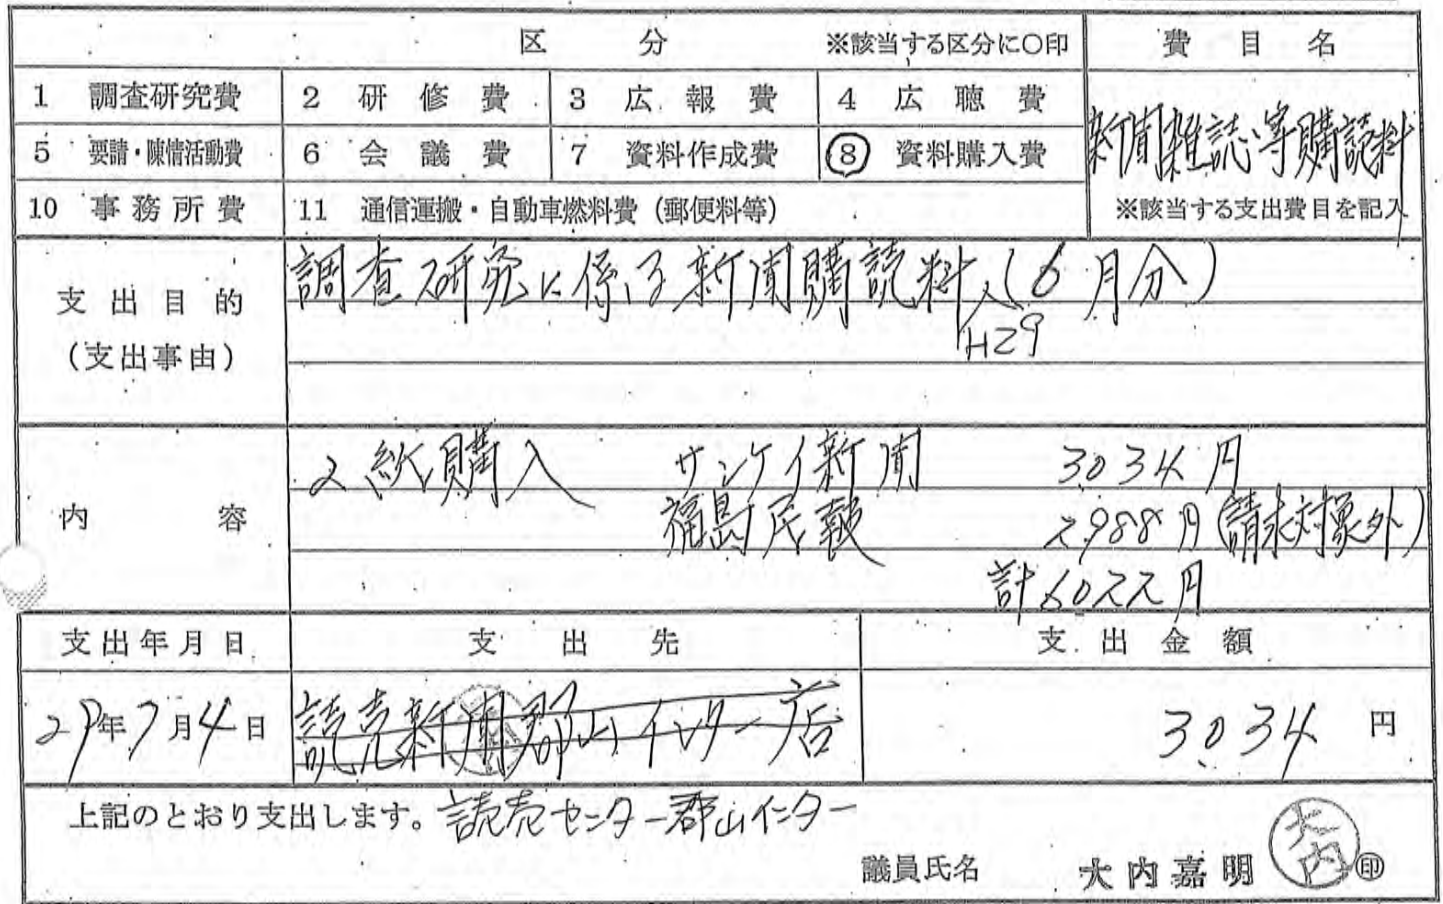 区 分 ※該当する区分に○印 費 目 名
1 調査研究費 2 研 修 費 3 広 報 費 4 広 聴 費
新聞雑誌等購読料
5 要請・陳情活動費 6 会 議 費 7 資料作成費 8 資料購入費
10 事 務 所 費 11 通信運搬・自動車燃料費（郵便料等） ※該当する支出費目を記入
支 出 目 的
（支出事由）
調査研究に係る新聞購読料（6月分）
H29
内 容
2紙購入 サンケイ新聞 3034円
福島民報 2988円（請求対象外）
計6022円
支出年月日 支 出 先 支 出 金 額
29年7月4日 読売新聞郡山インター店 3034円
上記のとおり支出します。読売センター郡山インター
議員氏名 大内嘉明 大内 印